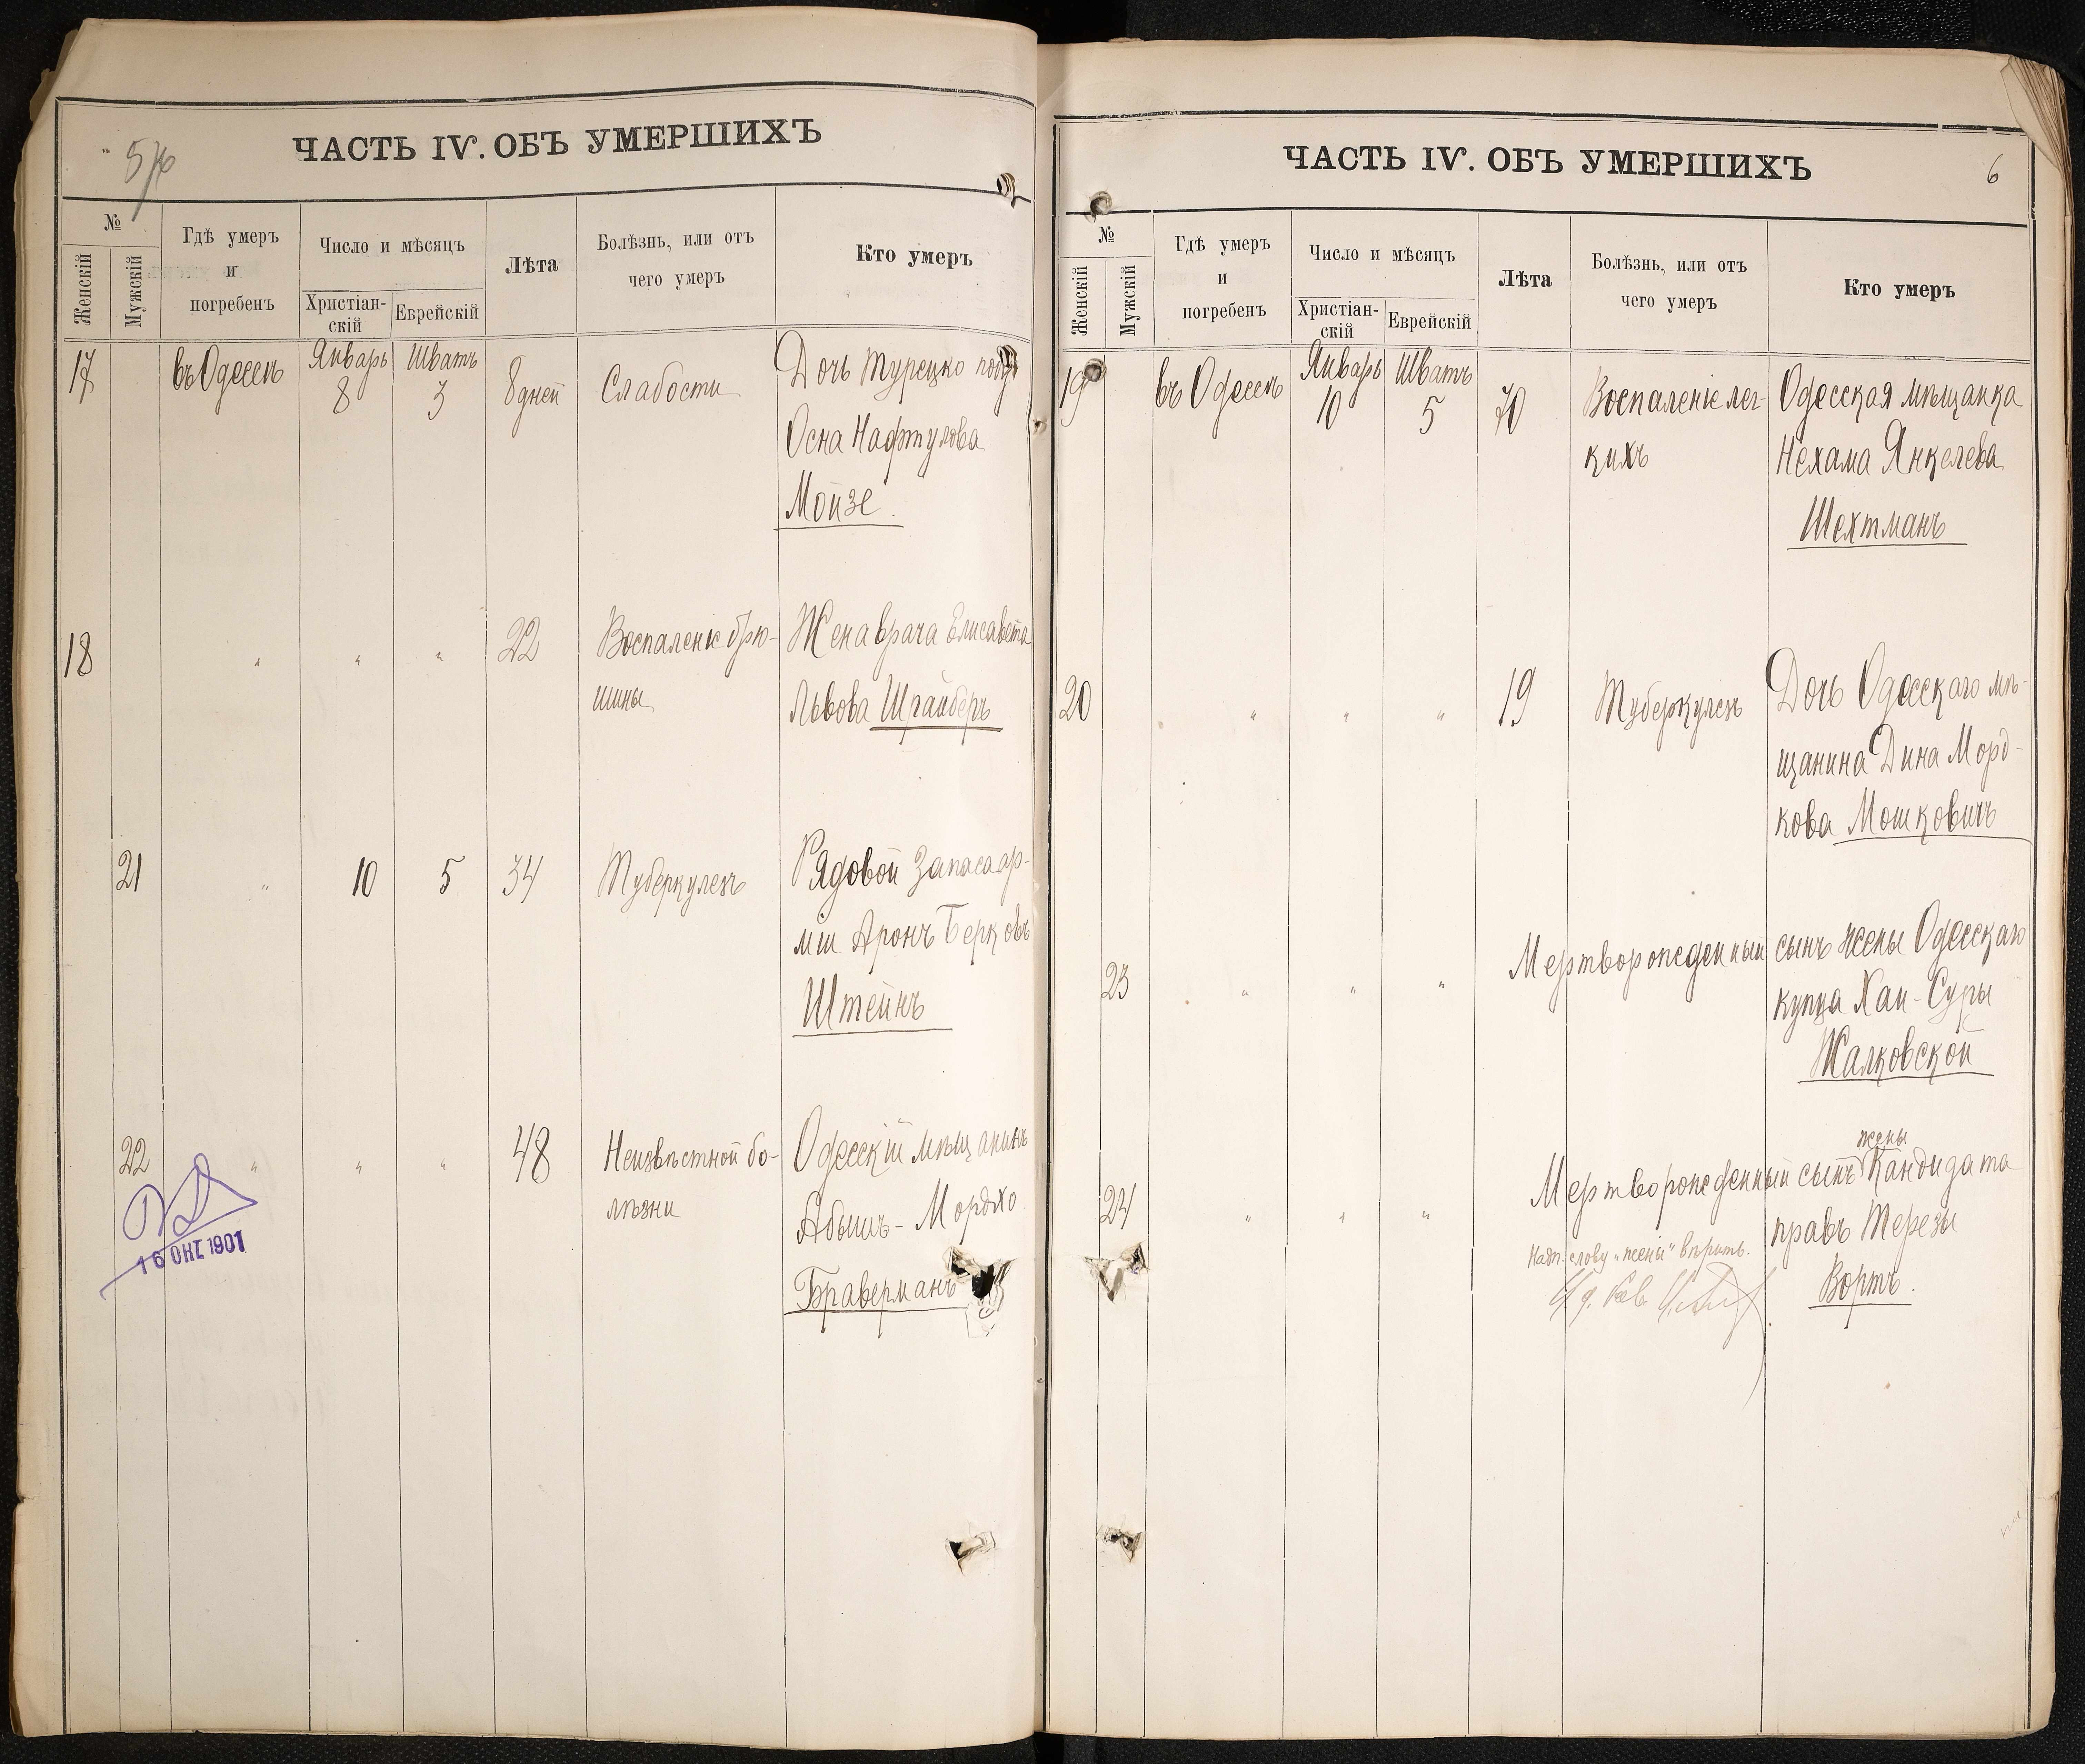 5/6
ЧАСТЬ IV. ОБЪ УМЕРШИХЪ
№
Женскій
Мужскій
Гдѣ умеръ
и
погребенъ
Число и мѣсяцъ
Христіан-
скій
Еврейскій
Лѣта
Болѣзнь, или отъ
чего умеръ
Кто умеръ
17 въ Одессѣ Январь 8 Шватъ 3 8 дней Слабости Дочь Турецко подд
Осна Нафтулова
Мойзе.
18 " " " 22 Воспаленіе брю- Жена врача Елисавета
шины Львова Шрайберъ
21 " 10 5 34 Туберкулезъ Рядовой Запаса ар-
міи Аронъ Берковъ
Штейнъ
22 " " " 48 Неизвѣстной бо- Одесскій мѣщанинъ
лѣзни Абышъ-Мордхо
Браверманъ
16 ОКТ 1901
ЧАСТЬ IV. ОБЪ УМЕРШИХЪ
6
№
Женскій
Мужскій
Гдѣ умеръ
и
погребенъ
Число и мѣсяцъ
Христіан-
скій
Еврейскій
Лѣта
Болѣзнь, или отъ
чего умеръ
Кто умеръ
19 въ Одессѣ Январь 10 Шватъ 5 70 Воспаленіе лег- Одесская мѣщанка
кихъ Нехама Янкелева
Шехтманъ
20 " " " 19 Туберкулезъ Дочь Одесскаго мѣ-
щанина Дина Морд-
кова Мошковичъ
23 " " " Мертворожденный сынъ жены Одесскаго
купца Хаи-Суры
Жалковской
жены
24 " " " Мертворожденный сынъ Кандидата
правъ Терезы
Надп. слову „жены" вѣрить.
Вортъ.
И д. Рав.